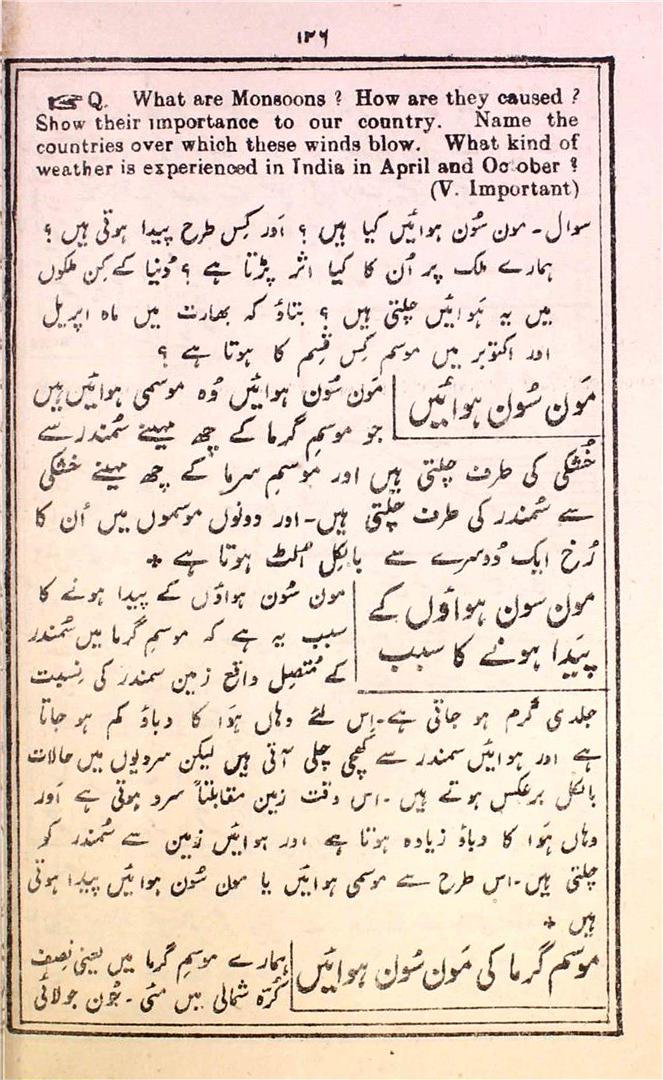 ۱۲۶
☞ Q. What are Monsoons ? How are they caused ?
Show their importance to our country. Name the
countries over which these winds blow. What kind of
weather is experienced in India in April and October ?
(V. Important)
سوال۔ مون سُون ہوائیں کیا ہیں ؟ اَور کِس طرح پیدا ہوتی ہیں ؟
ہمارے ملک پر اُن کا کیا اثر پڑتا ہے ؟ دُنیا کے کِن ملکوں
میں یہ ہَوائیں چلتی ہیں ؟ بتاؤ کہ بھارت میں ماہ اپریل
اور اکتوبر میں موسم کِس قِسم کا ہوتا ہے ؟
مَون سُون ہوائیں
مَون سُون ہوائیں وُہ موسمی ہوائیں ہیں
جو موسمِ گرما کے چھ مہینے سُمندر سے
خُشکی کی طرف چلتی ہیں اور موسمِ سرما کے چھ مہینے خشکی
سے سُمندر کی طرف چلتی ہیں۔ اور دونوں موسموں میں اُن کا
رُخ ایک دُوسرے سے بالکل اُلٹ ہوتا ہے *
مون سون ہواؤں کے
پیَدا ہونے کا سبب
مون سُون ہواؤں کے پیدا ہونے کا
سبب یہ ہے کہ موسمِ گرما میں سُمندر
کے مُتصِل واقع زمین سمندر کی نِسبت
جلدی گرم ہو جاتی ہے۔ اِس لئے وہاں ہَوا کا دباؤ کم ہو جاتا
ہے اور ہوائیں سمندر سے کھِچی چلی آتی ہیں لیکن سردیوں میں حالات
بالکل برعکس ہوتے ہیں ۔ اس وقت زمین مقابلتاً سرد ہوتی ہے اَور
وہاں ہَوا کا دباؤ زیادہ ہوتا ہے اور ہوائیں زمین سے سُمندر کو
چلتی ہیں۔ اس طرح سے موسمی ہوائیں یا مون سُون ہوائیں پیدا ہوتی
ہیں *
موسمِ گرما کی مَون سُون ہوائیں
ہمارے موسمِ گرما میں یعنی نِصف
کُرّہ شمالی میں مئی ۔ جُون جولائی